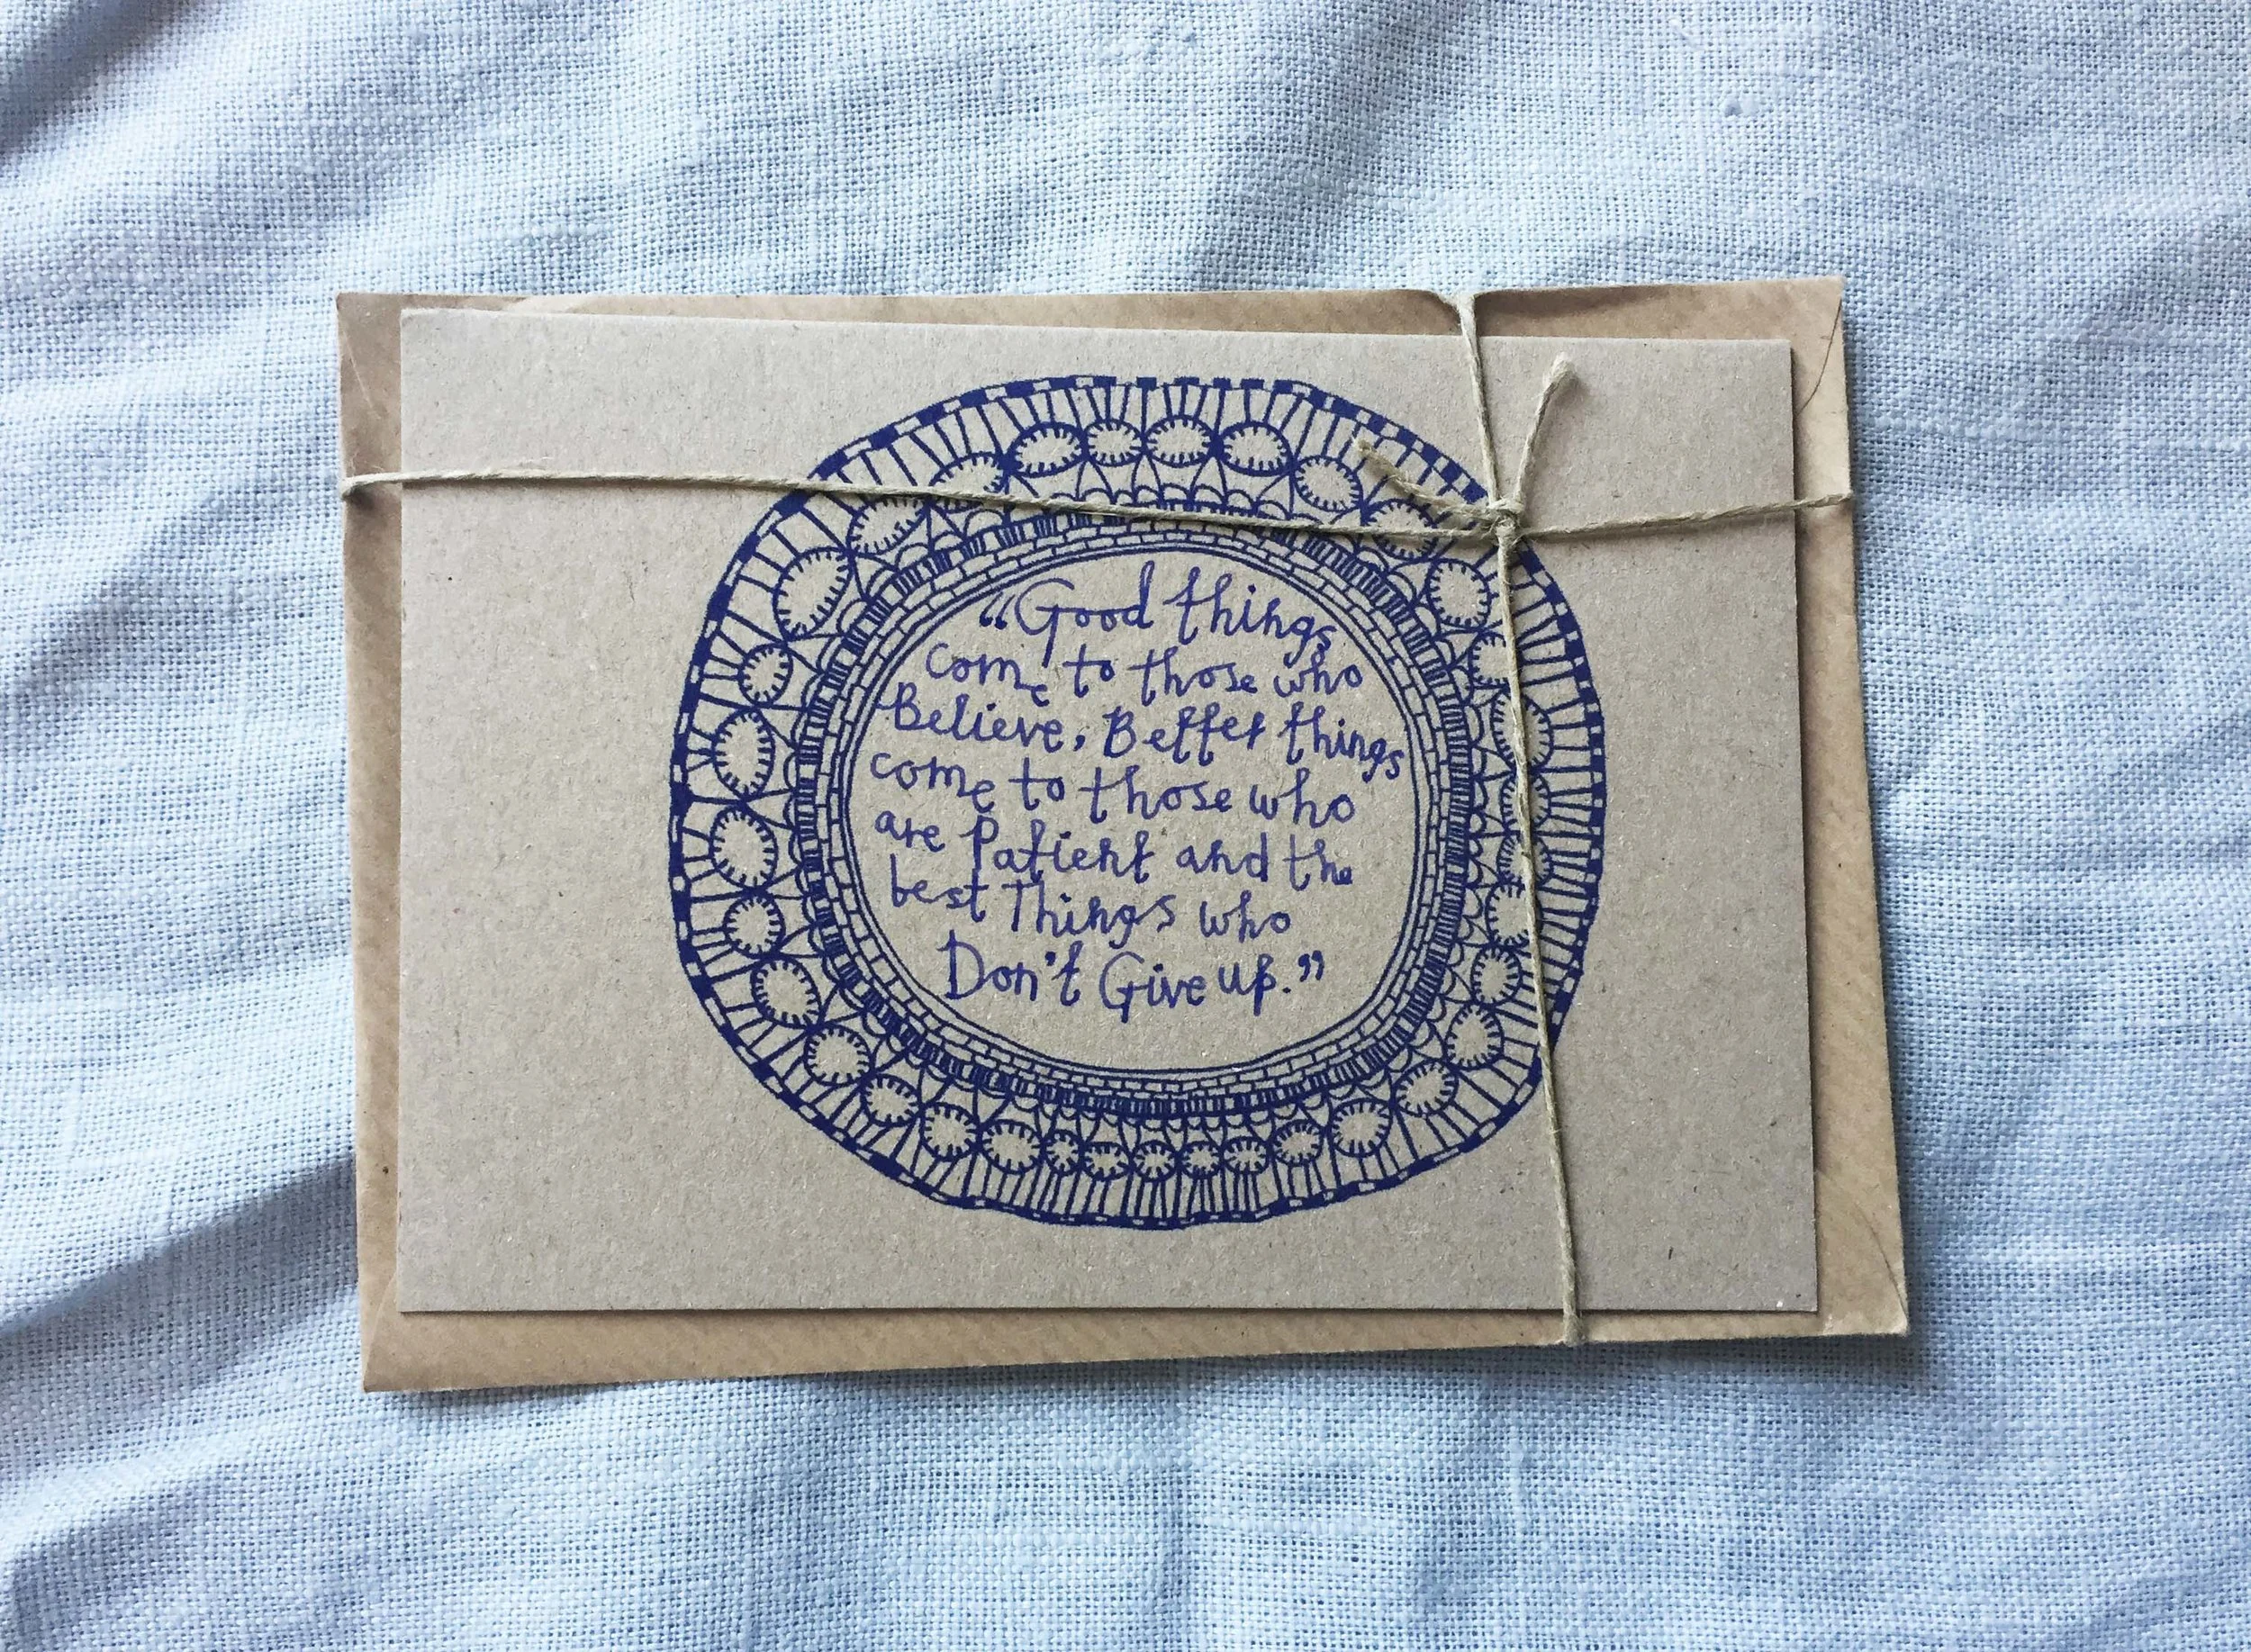 “Good things
come to those who
Believe, Better things
come to those who
are Patient and the
best Things who
Don't Give up.”